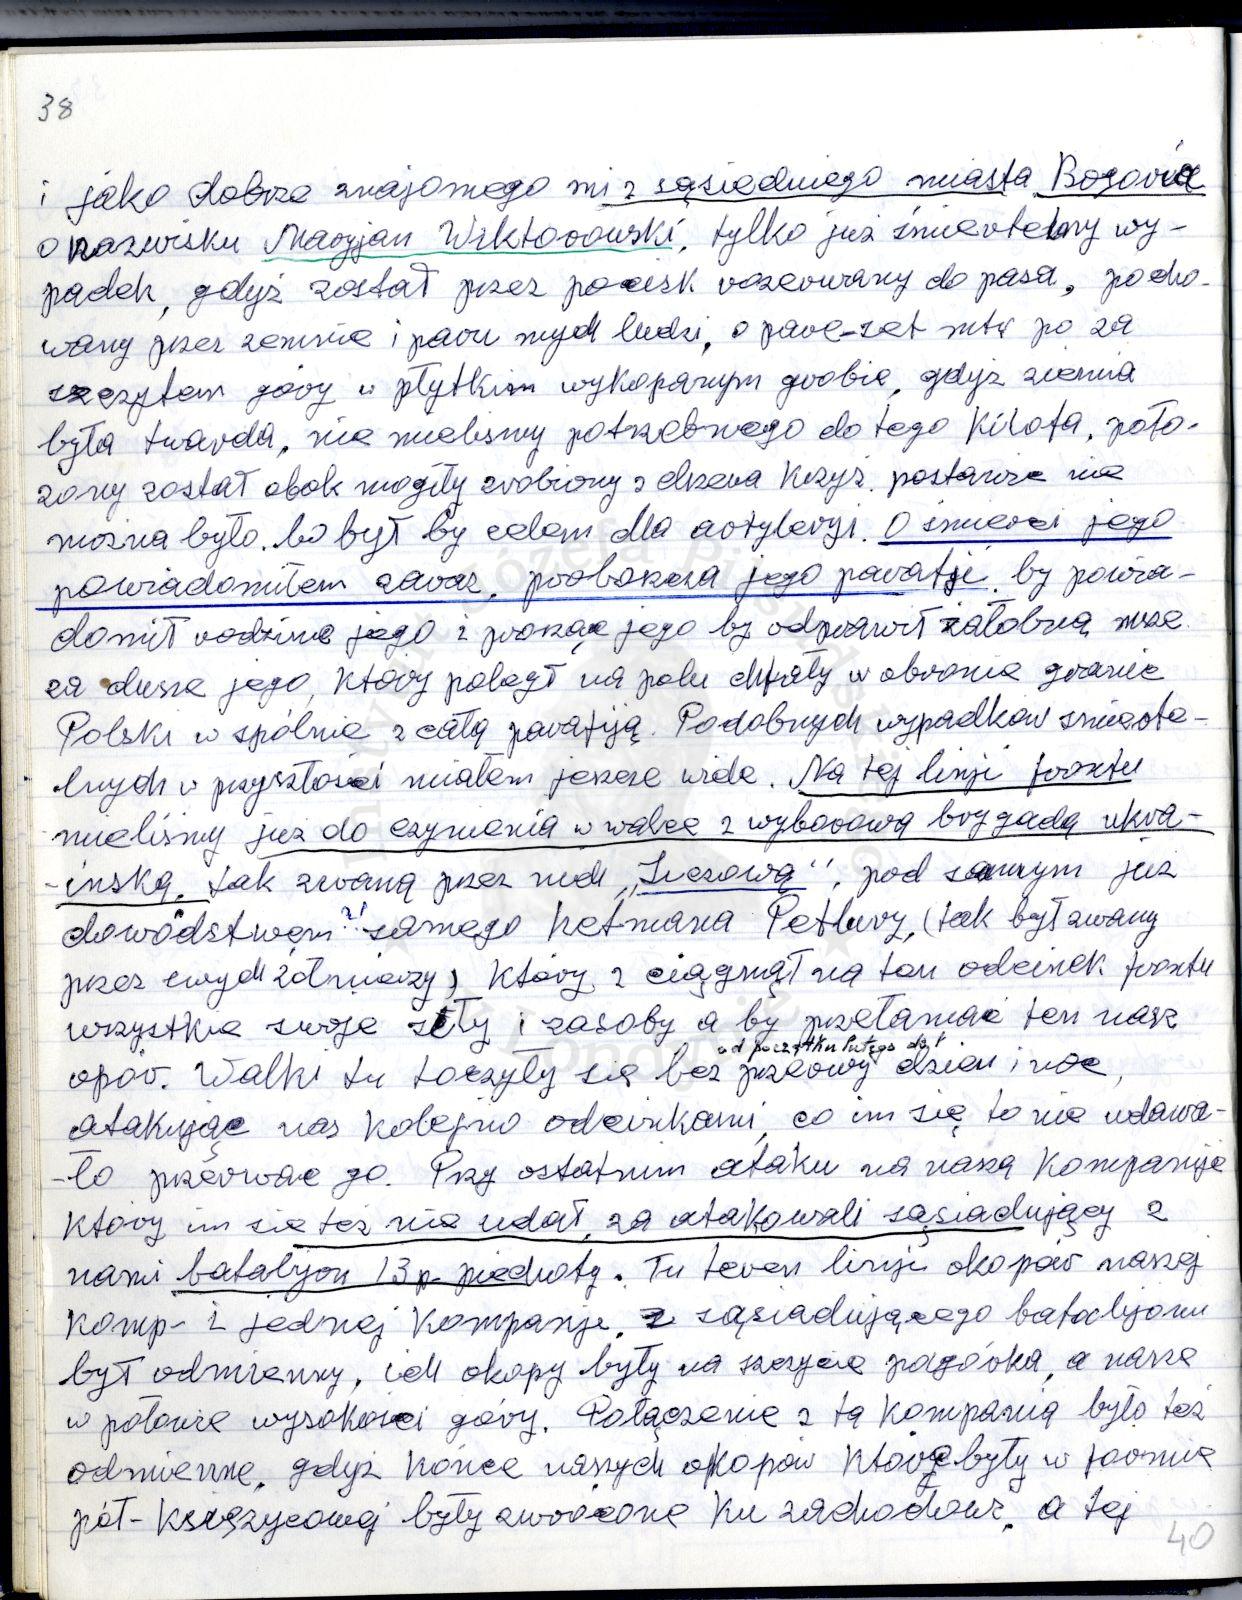 38
i jako dobrze znajomego mi z sąsiedniego miasta Bogoria
o nazwisku Maryjan Wiktorowski, tylko już śmiertelny wy-
padek, gdyż został przez pocisk rozerwany do pasa, pocho-
wany przez zemnie i paru mych ludzi, o pare-set mtr po za
szczytem góry w płytkim wykopanym grobie, gdyż ziemia
była twarda, nie mieliśmy potrzebnego do tego kilofa, poło-
żony został obok mogiły zrobiony z drzewa krzyż. postawić nie
można było. bo był by celem dla artyleryi. O śmierci jego
powiadomiłem zaraz, proboszcza jego parafji, by powia-
domił rodzinę jego i prosząc jego by odprawił żałobną msze
za dusze jego, który poległ na polu chwały w obronie granic
Polski w spólnie z całą parafiją. Podobnych wypadków śmierte-
lnych w przyszłości miałem jeszcze wiele. Na tej linji frontu
mieliśmy już do czynienia w walce z wyborową brygadą ukra-
-ińską, tak zwaną przez nich „Siczową", pod samym już
dowództwem "samego hetmana Petlury, (tak był zwany
przez swych żołnierzy) który z ciągnął na ten odcinek frontu
wszystkie swoje siły i zasoby a by przełamać ten nasz
od początku lutego 1919
opór. Walki tu toczyły się bez przerwy dzień i noc,
atakując nas kolejno odcinkami, co im się to nie udawa-
-ło przerwać go. Przy ostatnim ataku na naszą kompanije
który im sie też nie udał, za atakowali sąsiadujący z
nami batalijon 13 p piechoty. Tu teren linji okopów naszej
komp- i jednej kompanji, z sąsiadującego batalijonu
był odmienny, ich okopy były na szczycie pagórka, a nasze
w połowie wysokości góry. Połączenie z tą kompanią było też
odmienne, gdyż końce naszych okopów które były w formie
pół-księżycowej były zwrócone ku zachodowi, a tej
40